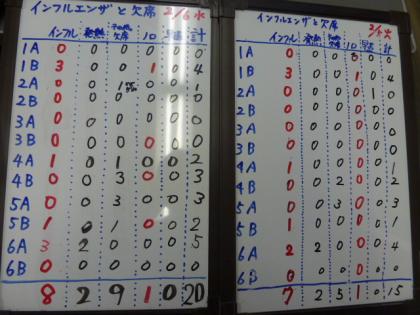 インフルエンザと欠席 2/6 水
インフル 発熱 その他欠席 10 早 計
1A 0 0 0 0 0 0
1B 3 0 0 1 0 4
2A 0 0 1 0 0 1
2B 0 0 0 0 0 0
3A 0 0 0 0 0 0
3B 0 0 0 0 0 0
4A 1 0 1 0 0 2
4B 0 0 3 0 0 3
5A 0 0 3 0 0 3
5B 1 0 1 0 0 2
6A 3 2 0 0 0 5
6B 0 0 0 0 0 0
8 2 9 1 0 20
インフルエンザと欠席 火
インフル 発熱 10 早 計
1A 0 0 0 0 0 0
1B 3 0 0 1 0 4
2A 0 0 0 0 1 0
2B 0 0 0 0 0 0
3A 0 0 0 0 0 0
3B 0 0 0 0 0 0
4A 1 0 0 0 0 1
4B 0 0 2 0 0 2
5A 0 0 3 0 0 3
5B 1 0 0 0 0 1
6A 2 2 0 0 0 4
6B 0 0 0 0 0 0
7 2 5 1 0 15